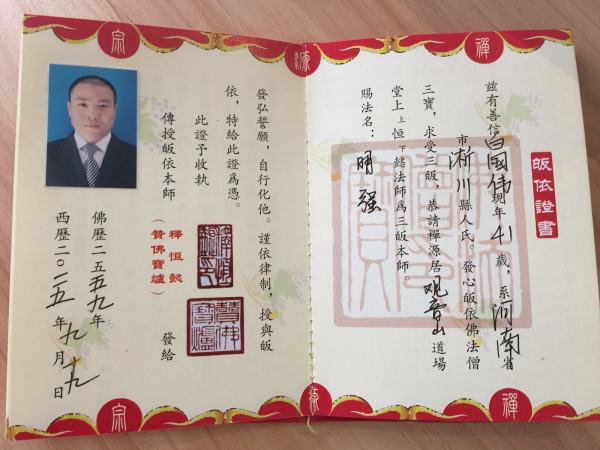 皈依證書
茲有善信白國偉現年41歲，系河南省
市淅川縣人氏。發心皈依佛法僧
三寶，求受三皈，恭請禪源居观音山道場
堂上上恒下懿法師為三皈本師。
賜法名：明强
發弘誓願，自行化他。謹依律制，授與皈
依，特給此證爲憑。
此證予收執
傳授皈依本師
釋恒懿
（贊佛寶爐）
發給
佛歷二五五九年
西歷二〇一五年九月十九日
宗
源
禪
宗
源
禪